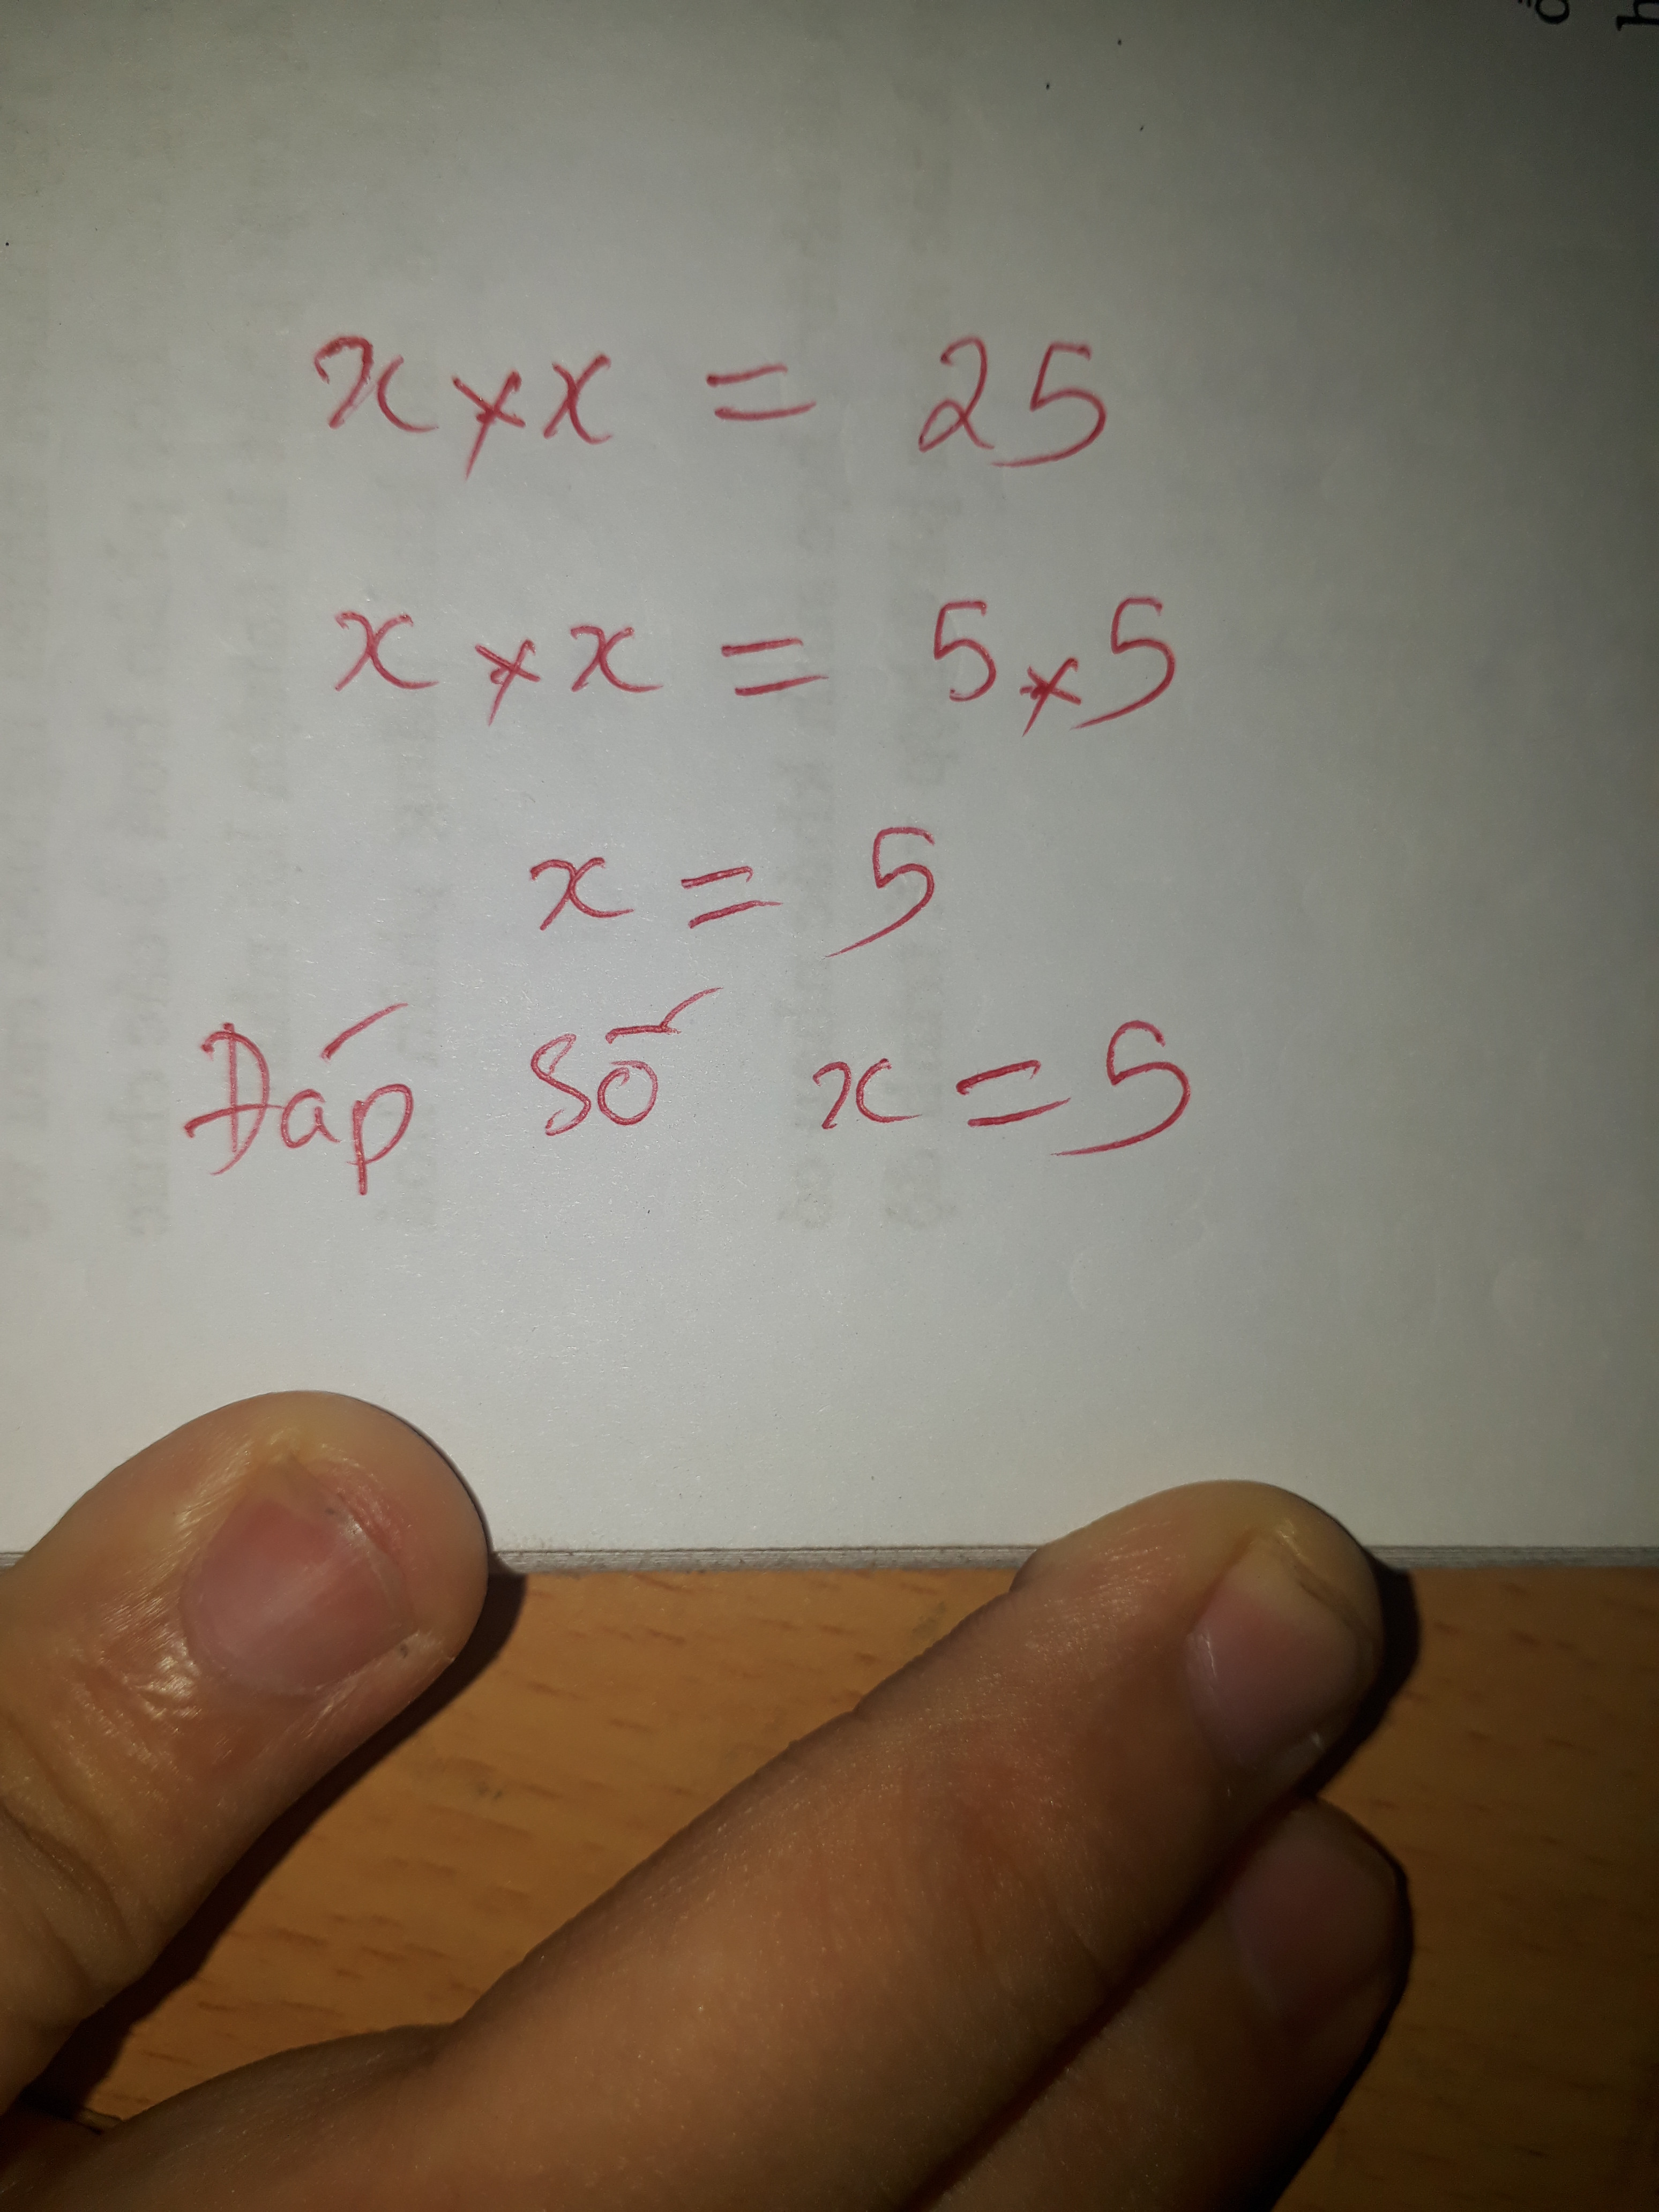 x × x = 25
x × x = 5 × 5
x = 5
Đáp số x = 5